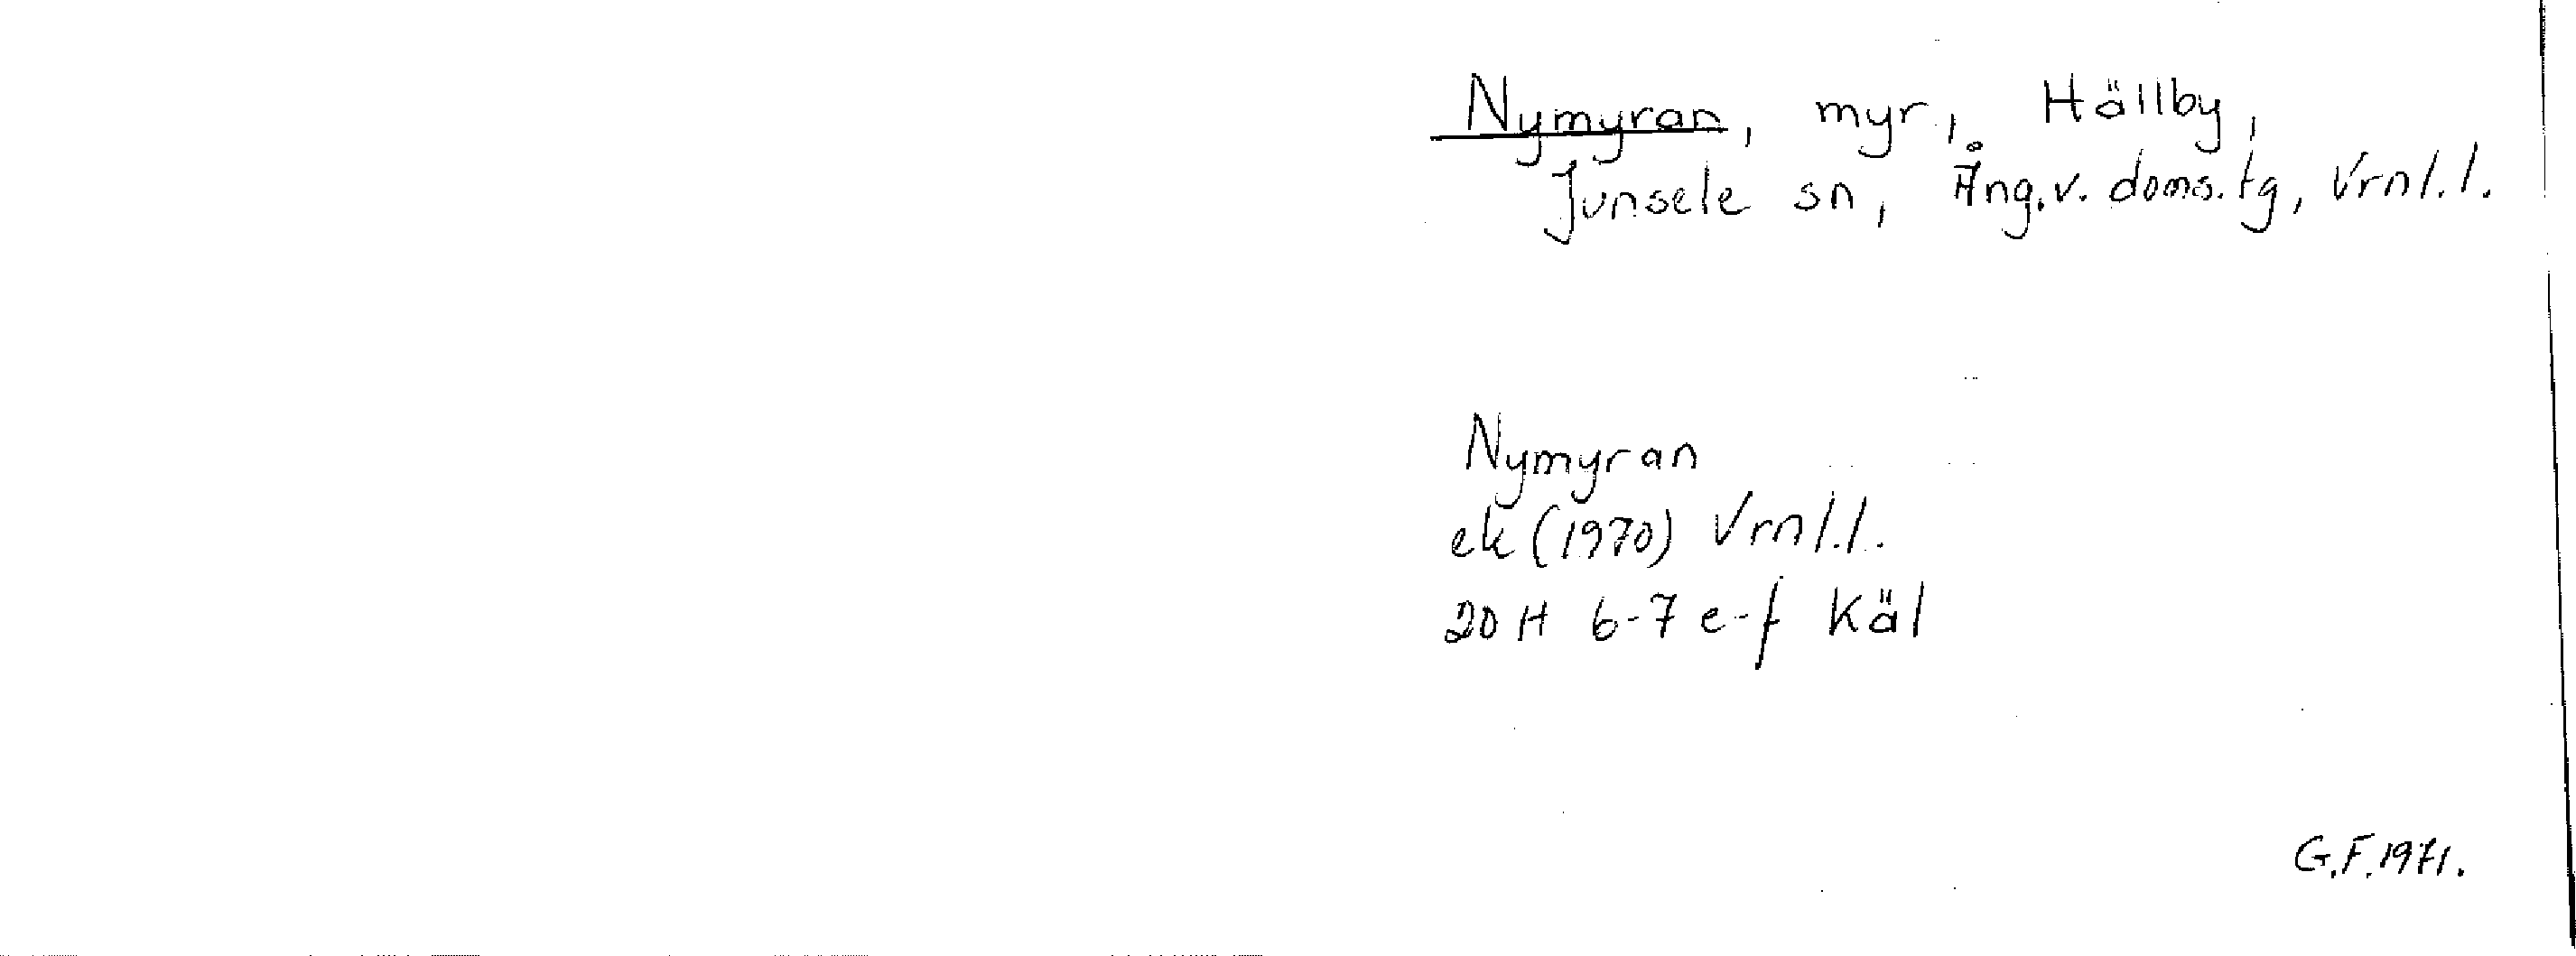 Nymyran, myr, Hällby,
Junsele sn, Ång.v. doms.tg, Vrnl.l.
Nymyran
ek (1970) Vrnl.l.
20 H 6-7 e-f Käl
G.F. 1971.